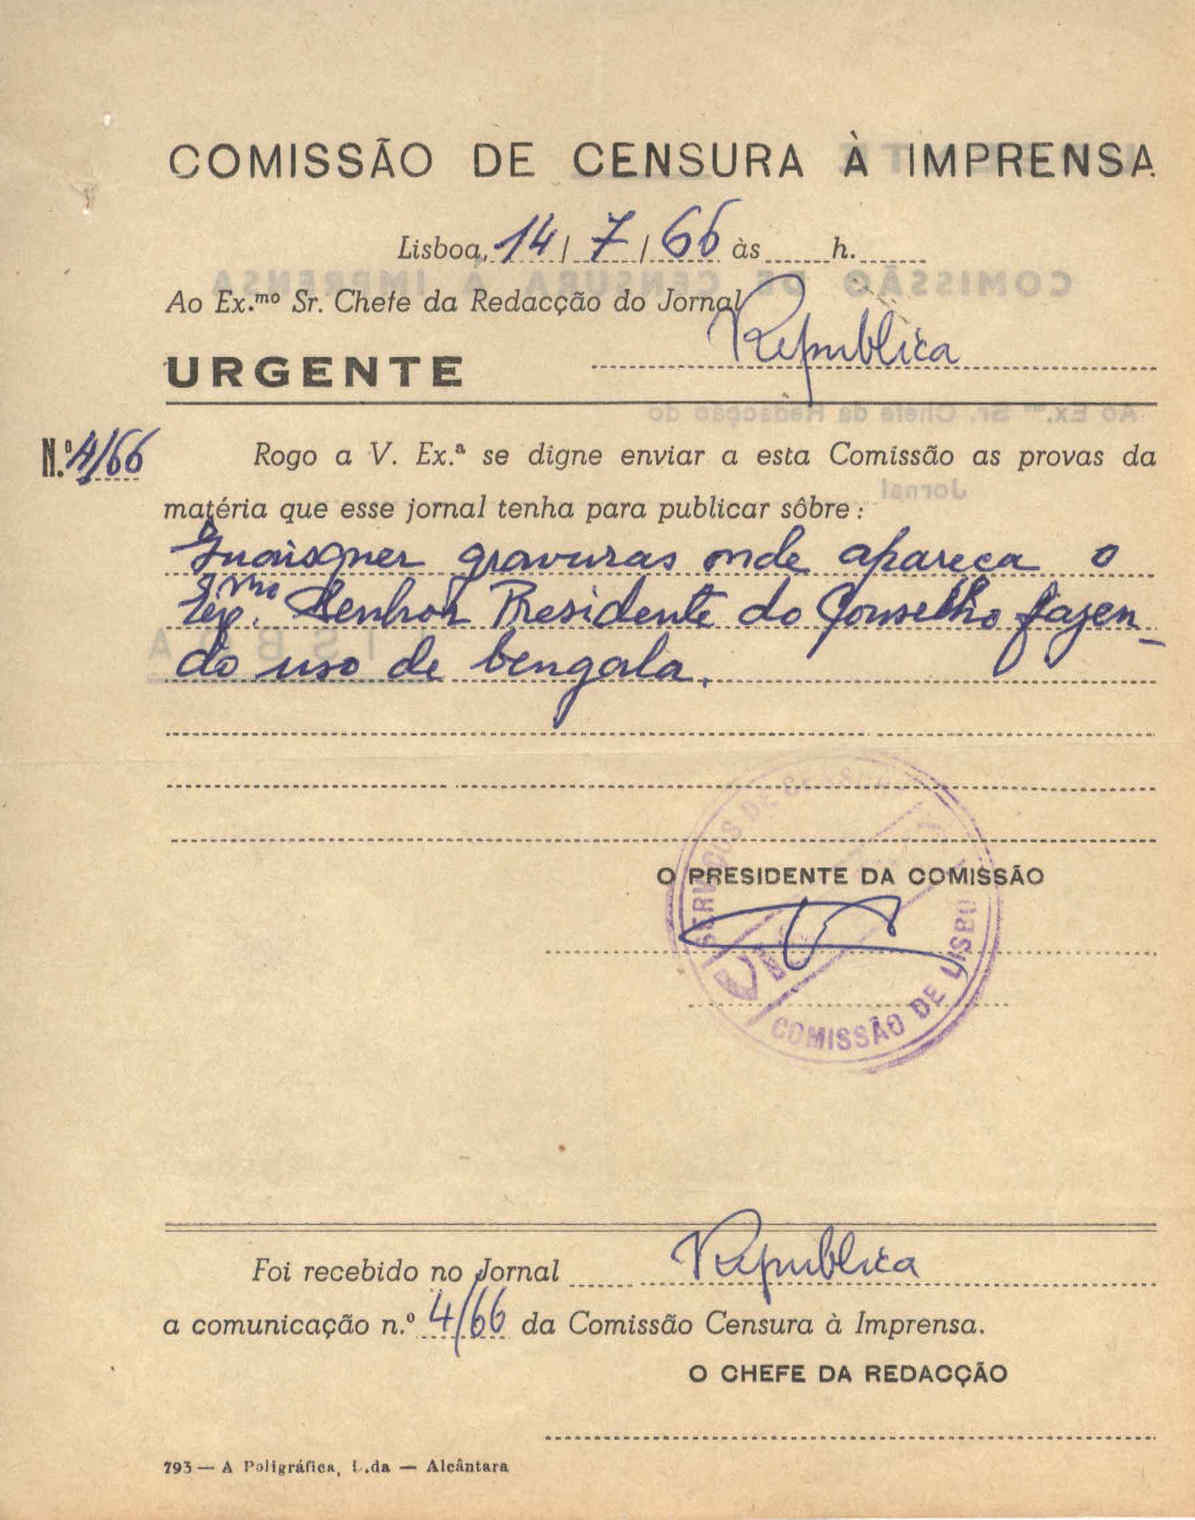 COMISSÃO DE CENSURA À IMPRENSA
Lisboa, 14 / 7 / 66 às ...... h. ......
Ao Ex.mo Sr. Chefe da Redacção do Jornal
Republica
URGENTE
N.º 4/66
Rogo a V. Ex.ª se digne enviar a esta Comissão as provas da
matéria que esse jornal tenha para publicar sôbre:
Quaisquer gravuras onde apareça o
Exmo. Senhor Presidente do Conselho fazen-
do uso de bengala.
O PRESIDENTE DA COMISSÃO
SERVIÇOS DE CENSURA
COMISSÃO DE LISBOA
Foi recebido no Jornal Republica
a comunicação n.º 4/66 da Comissão Censura à Imprensa.
O CHEFE DA REDACÇÃO
793 — A Poligráfica, L.da — Alcântara